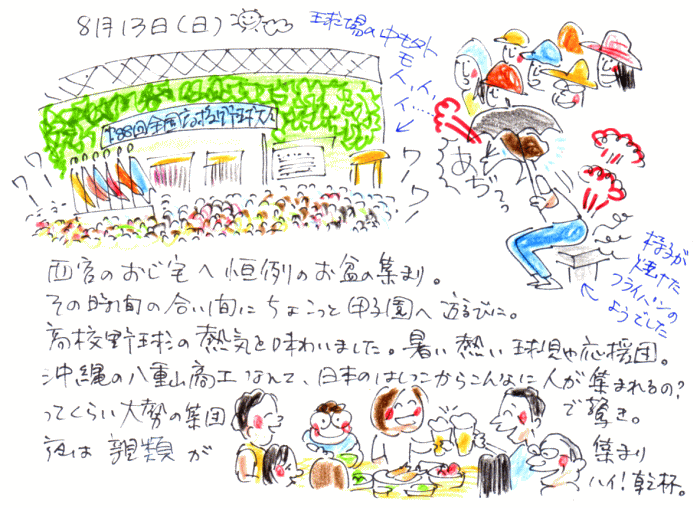 8月13日(日)
球場の中も外
モ
人、人、
人……
第88回全国高校野球大会
ワー
ワー!
ワーワー!
あ〜ぢ〜っ
椅子が
焼けた
フライパンの
ようでした
西宮のおじ宅へ恒例のお盆の集まり。
その時間の合い間にちょこっと甲子園へ遊びに。
高校野球の熱気を味わいました。暑い熱い球児や応援団。
沖縄の八重山商工なんて、日本のはしっこからこんなに人が集まれるの?
ってくらい大勢の集団で驚き。
夜は親類が集まり
ハイ!乾杯。